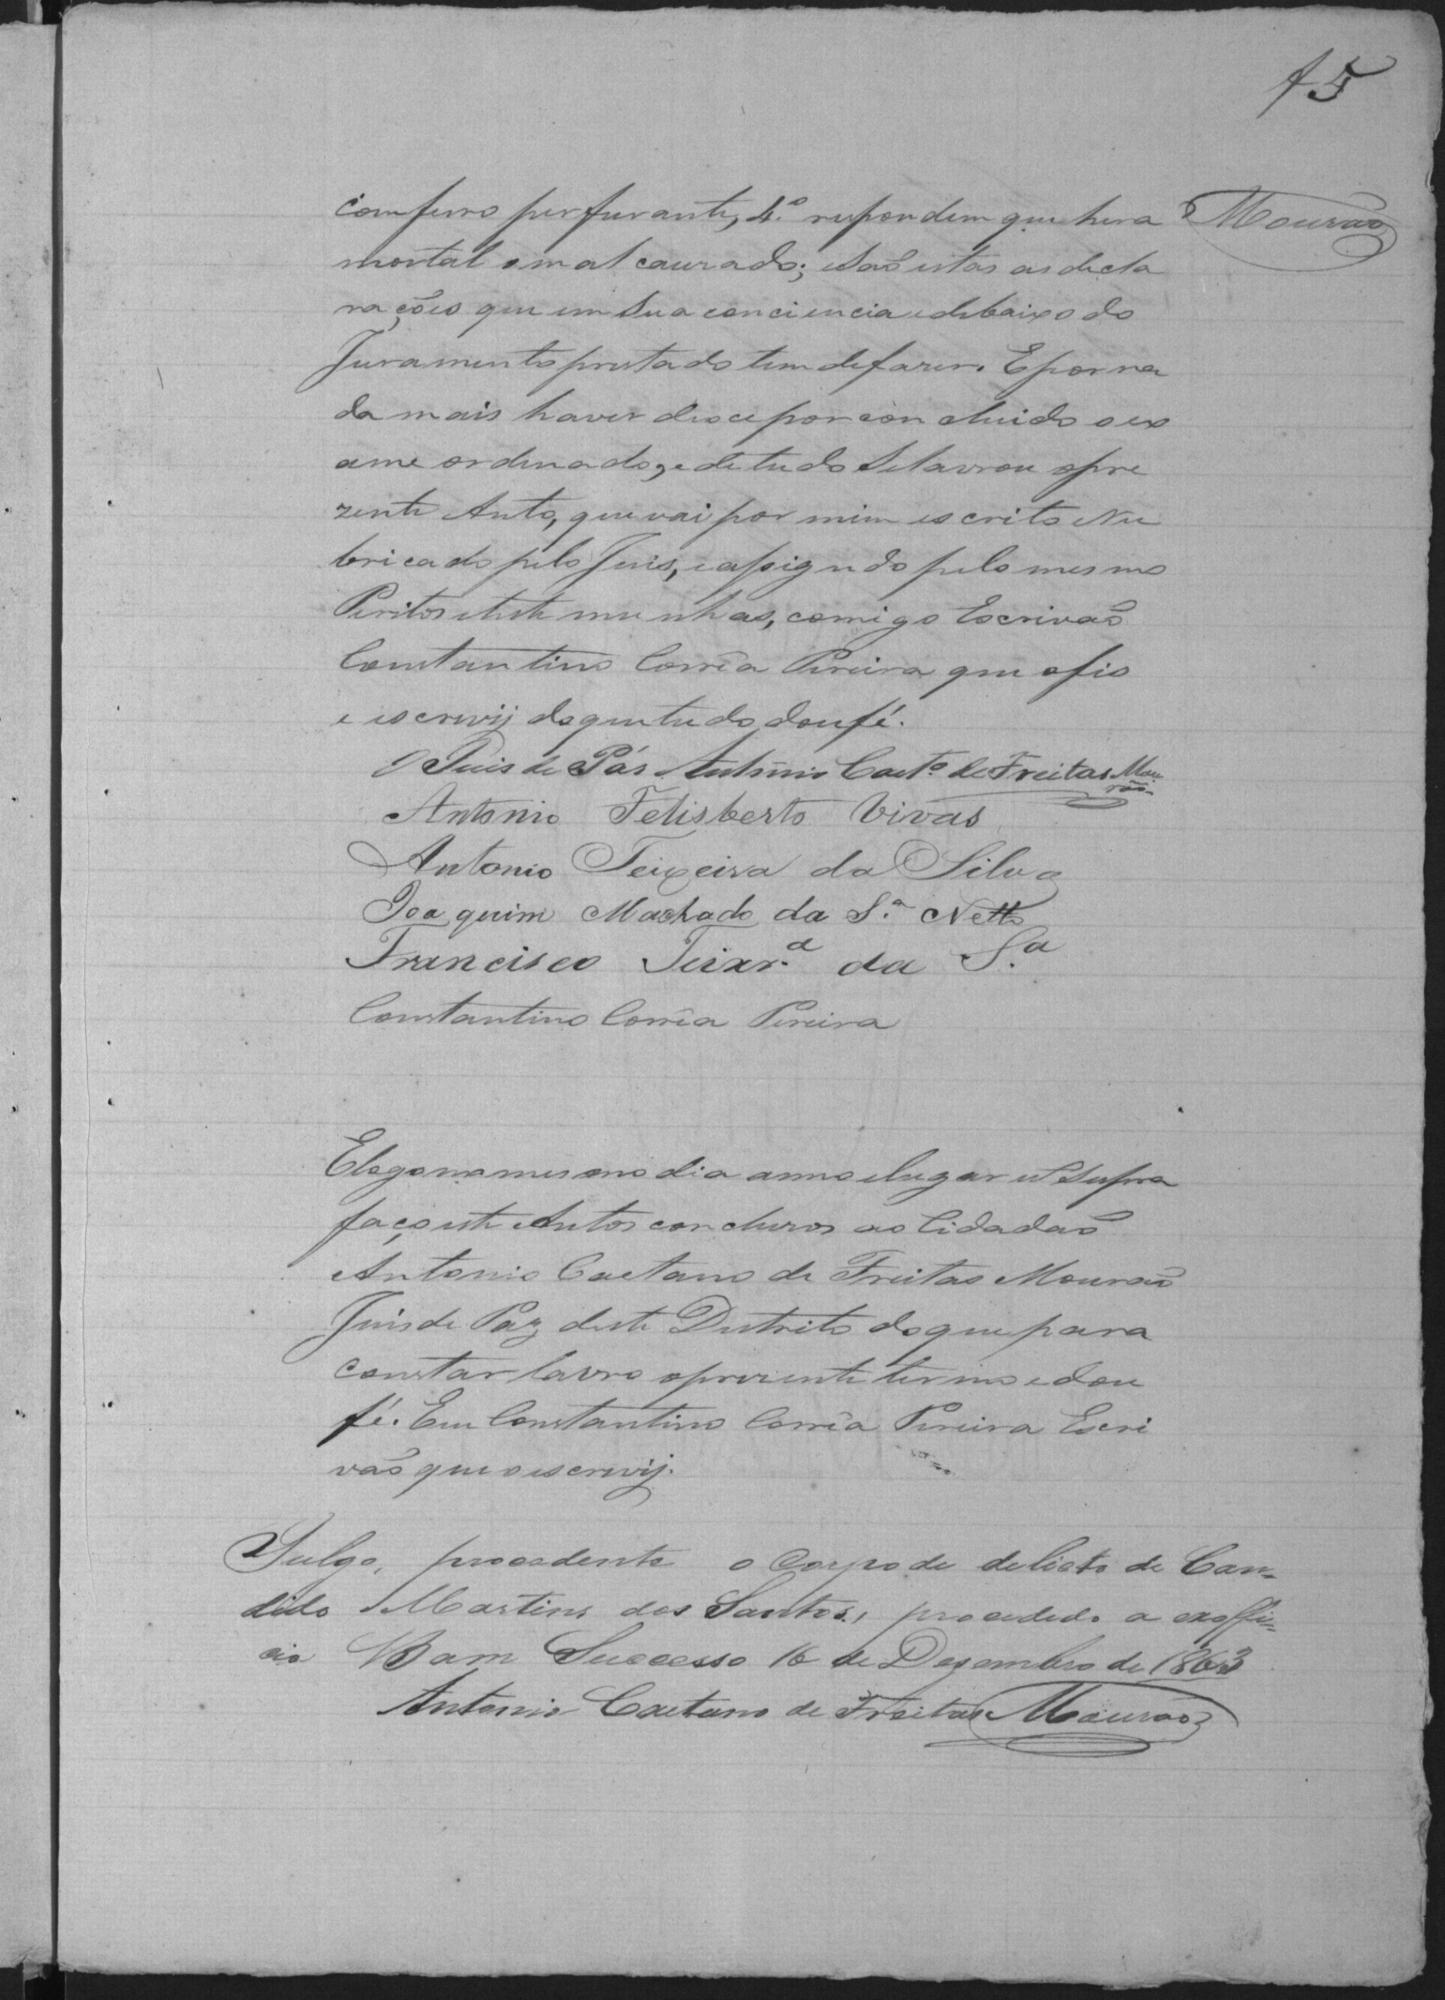 f 5
com ferro perfurante, 4.º respondem que hera
Mourão
mortal o mal causado; e são estas as decla
rações que em sua conciencia e debaixo do
Juramento prestado tem de fazer. E por na
da mais haver deo ce por con cluido o ex
ame ordenado, e de tudo Se lavrou o pre
zente Auto, que vai por mim escrito Ru
bricado pelo Juis, e assignado pelo mesmo
Peritos e teste munhas, comigo Escrivão
Constantino Corrêa Pereira que o fis
e escrevij do que tudo dou fé.
O Juis de Pás Antônio Caet.º de Freitas Mou
rão
Antonio Felisberto Vivas
Antonio Teixeira da Silva
Joaquim Machado da S.ª Netto
Francisco Teixr.ª da S.ª
Constantino Corrêa Pereira
E logo no mesmo dia anno e lugar ut Supra
faço este Autos concluzos ao Cidadão
Antonio Caetano de Freitas Mourão
Juis de Paz deste Destrito do que para
constar lavro o prezente termo e dou
fé. Eu Constantino Corrêa Pereira Escri
vão que o escrevij.
Julgo, procedente o Corpo de delicto de Can-
dido Martins dos Santos, procedido a exoffi-
cio Bam Successo 16 de Dezembro de 1863
Antonio Caetano de Freitas Mourão